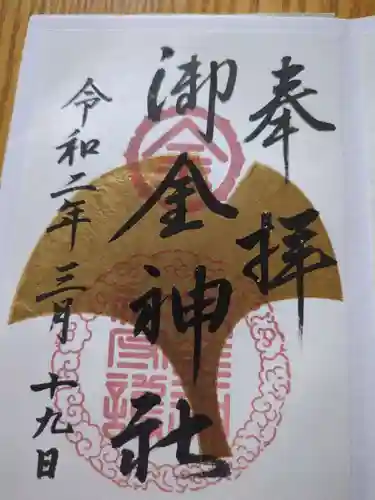 奉拝
御金神社
令和二年三月十九日